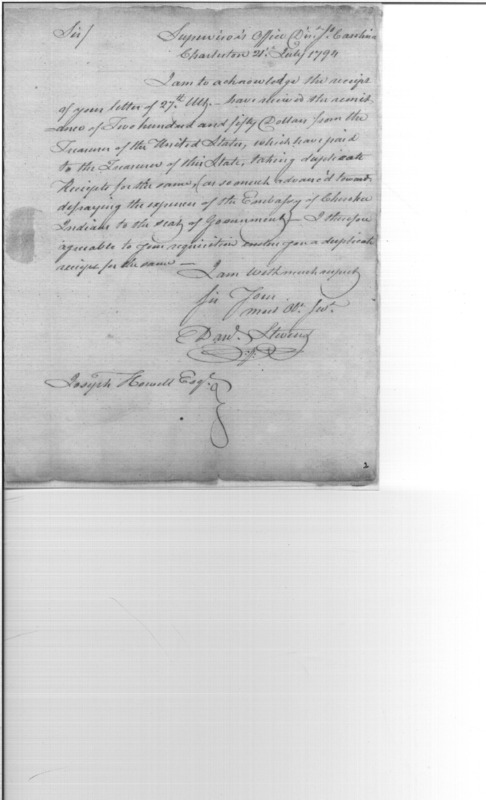 Sir/ Supervisor's Office Dist. So. Carolina
Charleston 21st July 1794
I am to acknowledge the receipt
of your letter of 27th Ulto. — have received the remit
ance of Two hundred and fifty Dollars from the
Treasurer of the United States, which have paid
to the Treasurer of this State, taking duplicate
Receipts for the same for so much advanc'd towards
defraying the expence of the Embassy of Cherokee
Indians to the seat of Government — I therefore
agreeable to your requisition enclose you a duplicate
receipt for the same —
I am with much respect
Sir Your
most Ob. Servt.
Danl. Stevens
Joseph Howell Esqr.
2